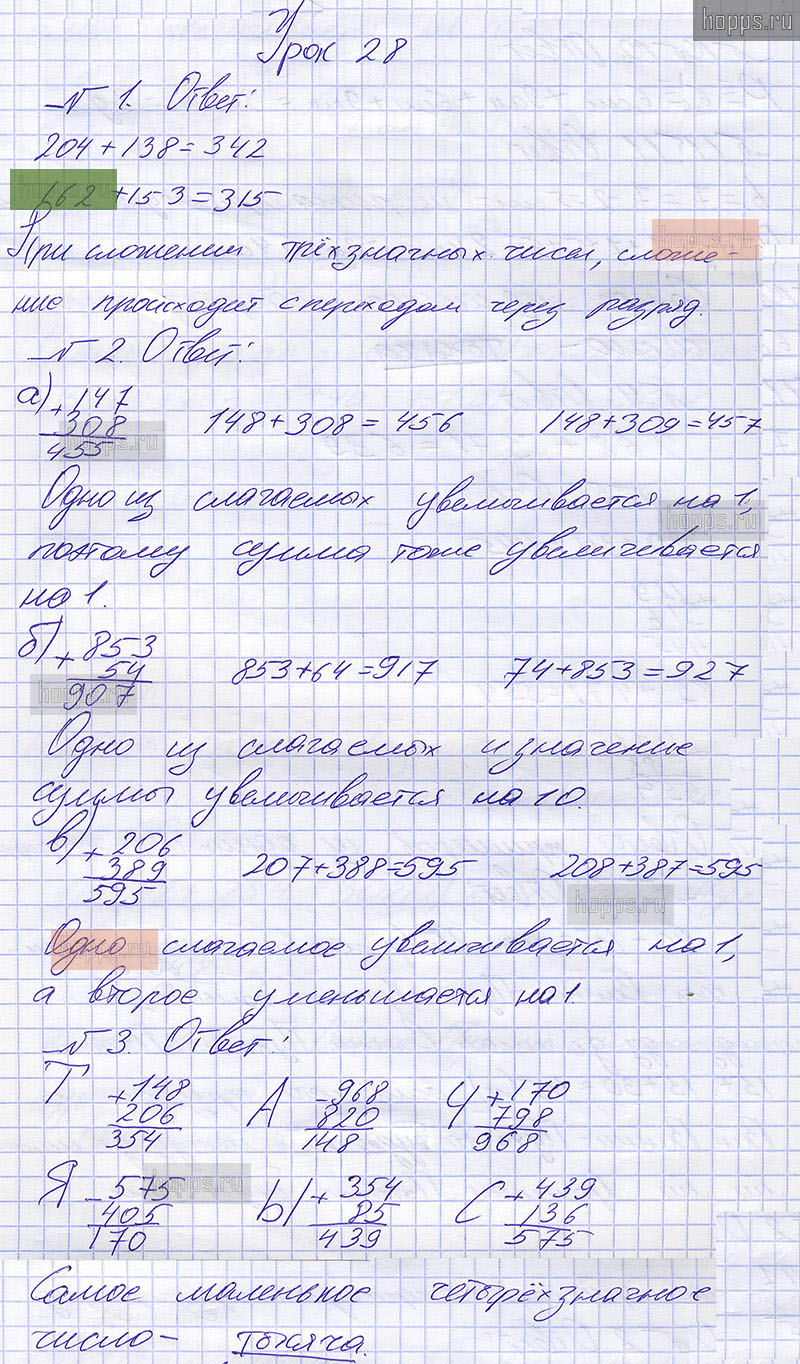 hopps.ru
Урок 28
№ 1. Ответ:
204 + 138 = 342
162 + 153 = 315
При сложении трёхзначных чисел, сложе-
ние происходит с переходом через разряд.
№ 2. Ответ:
а) + 147
308
455
148 + 308 = 456
148 + 309 = 457
hopps.ru
Одно из слагаемых увеличивается на 1,
hopps.ru
поэтому сумма тоже увеличивается
на 1.
б) + 853
54
907
853 + 64 = 917
74 + 853 = 927
hopps.ru
Одно из слагаемых и значение
суммы увеличивается на 10.
в) + 206
389
595
207 + 388 = 595
208 + 387 = 595
hopps.ru
Одно слагаемое увеличивается на 1,
а второе уменьшается на 1
№ 3. Ответ:
Т + 148
206
354
А - 968
820
148
Ч + 170
798
968
Я - 575
405
170
hopps.ru
Ы + 354
85
439
С + 439
136
575
Самое маленькое четырёхзначное
число - тысяча.